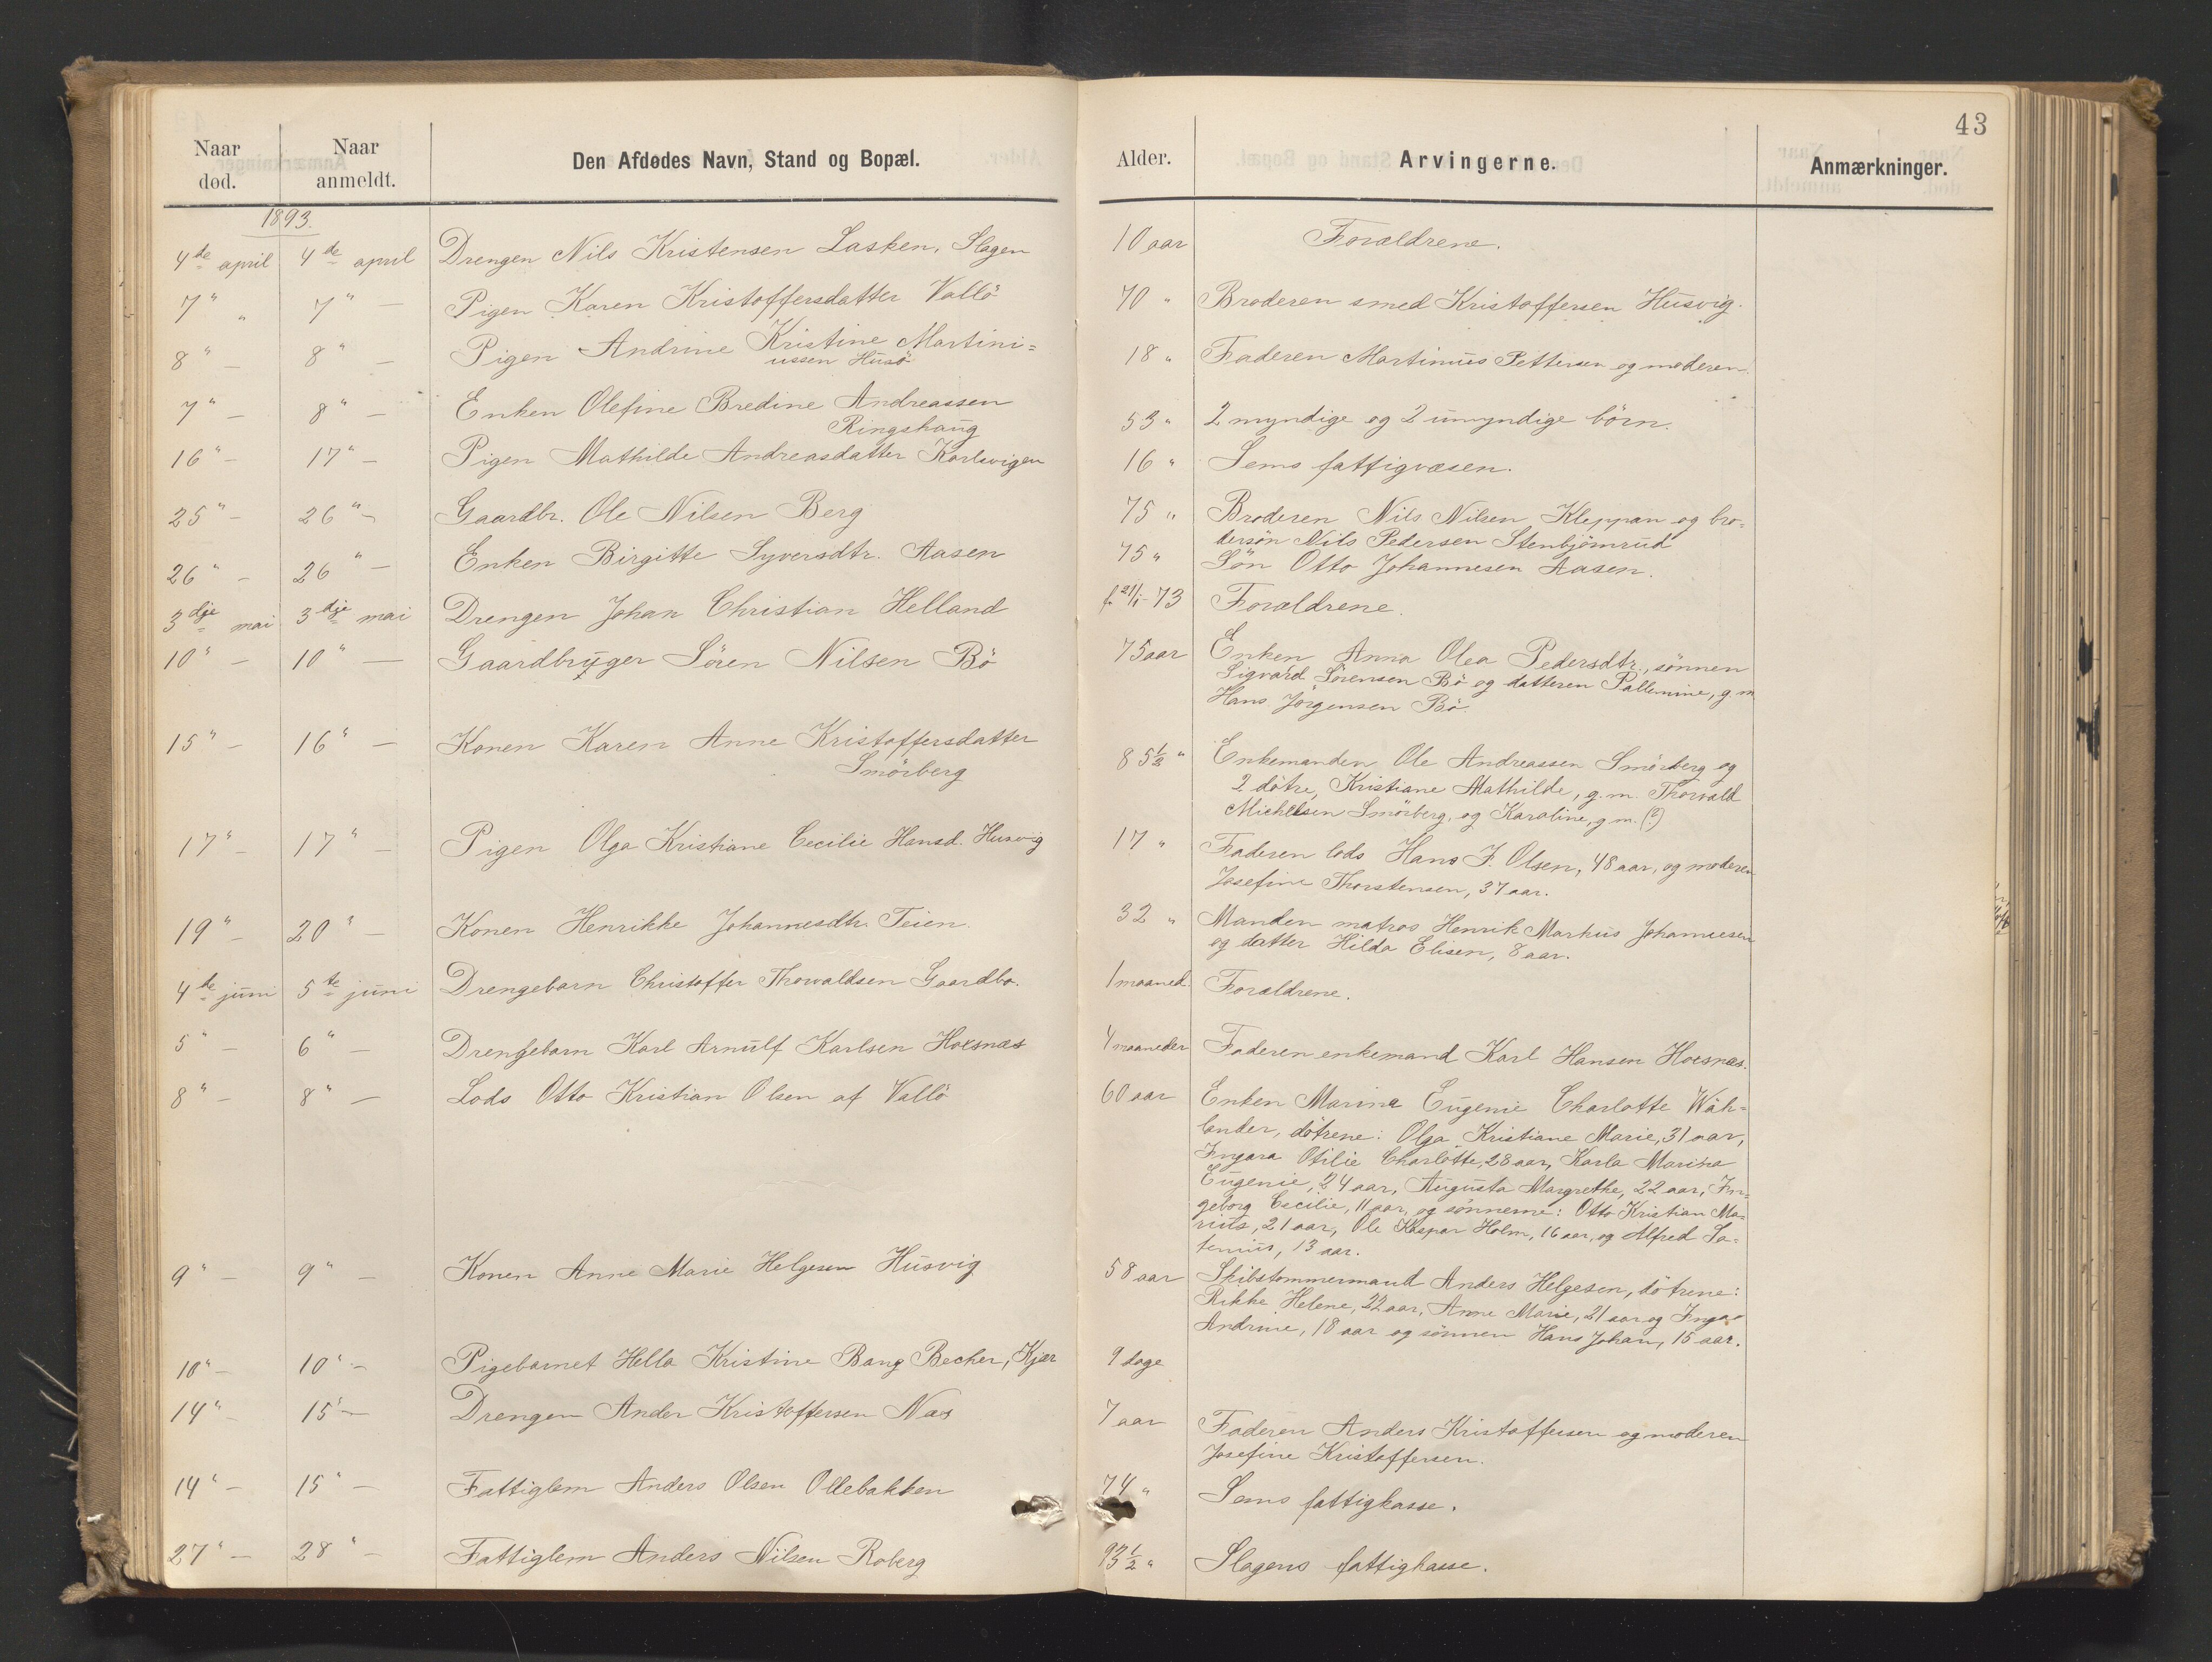 43
Naar død. Naar anmeldt. Den Afdødes Navn, Stand og Bopæl. Alder. Arvingerne. Anmærkninger.
1893.
4de april 4de april Drengen Nils Kristensen Lasken, Slagen 10 aar Forældrene.
7" " 7" — Pigen Karen Kristoffersdatter Vallö 70 " Broderen smed Kristoffersen Husvig.
8" — 8" — Pigen Andrine Kristine Martini=
ussen Husö 18 " Faderen Martinius Pettersen og moderen.
7" — 8" — Enken Olefine Bredine Andreassen
Ringshaug 53 " 2 myndige og 2 umyndige börn.
16" — 17" — Pigen Mathilde Andreasdatter Karlsvigen 16 " Sems fattigvæsen.
25" — 26" — Gaardbr. Ole Nilsen Berg 75 " Broderen Nils Nilsen Kleppan og bro=
dersön Nils Pedersen Stenbjömrud
26" — 26" — Enken Birgitte Syversdtr. Aasen 75 " Sön Otto Johannesen Aasen.
3dje mai 3dje mai Drengen Johan Christian Helland f. 21/1-73 Forældrene.
10" — 10" — Gaardbruger Sören Nilsen Bö 75 aar Enken Anna Olea Pedersdtr., sönnen
Sigvard Sörensen Bö og datteren Pallemine, g. m.
Hans Jörgensen Bö.
15" — 16" — Konen Karen Anne Kristoffersdatter
Smörberg 85½ " Enkemanden Ole Andreassen Smörberg og
2 dötre, Kristiane Mathilde, g. m. Thorvald
Michelsen Smörberg, og Karoline, g. m. (?)
17" — 17" — Pigen Olga Kristiane Cecilie Hansd. Husvig 17 " Faderen lods Hans J. Olsen, 48 aar, og moderen
Josefine Thorstensen, 37 aar.
19" — 20" — Konen Henrikke Johannesdtr. Teien. 32 " Manden matros Henrik Markus Johannesen
og datter Hilda Elisen, 8 aar.
4de juni 5te juni Drengebarn Christoffer Thorvaldsen Gaardbo. 1 maaned. Forældrene.
5" — 6" — Drengebarn Karl Arnulf Karlsen Hoesnæs 4 maaneder Faderen enkemand Karl Hansen Hoesnæs.
8" — 8" — Lods Otto Kristian Olsen af Vallö 60 aar Enken Marina Eugenie Charlotte Wäh=
lander, dötrene: Olga Kristiane Marie, 31 aar,
Ingara Otilie Charlotte, 28 aar, Karla Marina
Eugenie, 24 aar, Augusta Margrethe, 22 aar, In=
geborg Cecilie, 11 aar, og sönnerne: Otto Kristian Ma=
rius, 21 aar, Ole Kaspar Holm, 16 aar, og Alfred Sa=
tenius, 13 aar.
9" — 9" — Konen Anne Marie Helgesen Husvig 58 aar Skibstømmermand Anders Helgesen, dötrene:
Rikke Helene, 22 aar, Anne Marie, 21 aar og Inga
Andrine, 18 aar og sönnen Hans Johan, 15 aar.
10" — 10" — Pigebarnet Hella Kristine Bang Becher, Kjær 9 dage
14" — 15" — Drengen Ander Kristoffersen Næs 7 aar Faderen Anders Kristoffersen og moderen
Josefine Kristoffersen.
14" — 15" — Fattiglem Anders Olsen Ollebakken 74 " Sems fattigkasse.
27" — 28" — Fattiglem Anders Nilsen Roberg 93½ " Slagens fattigkasse.